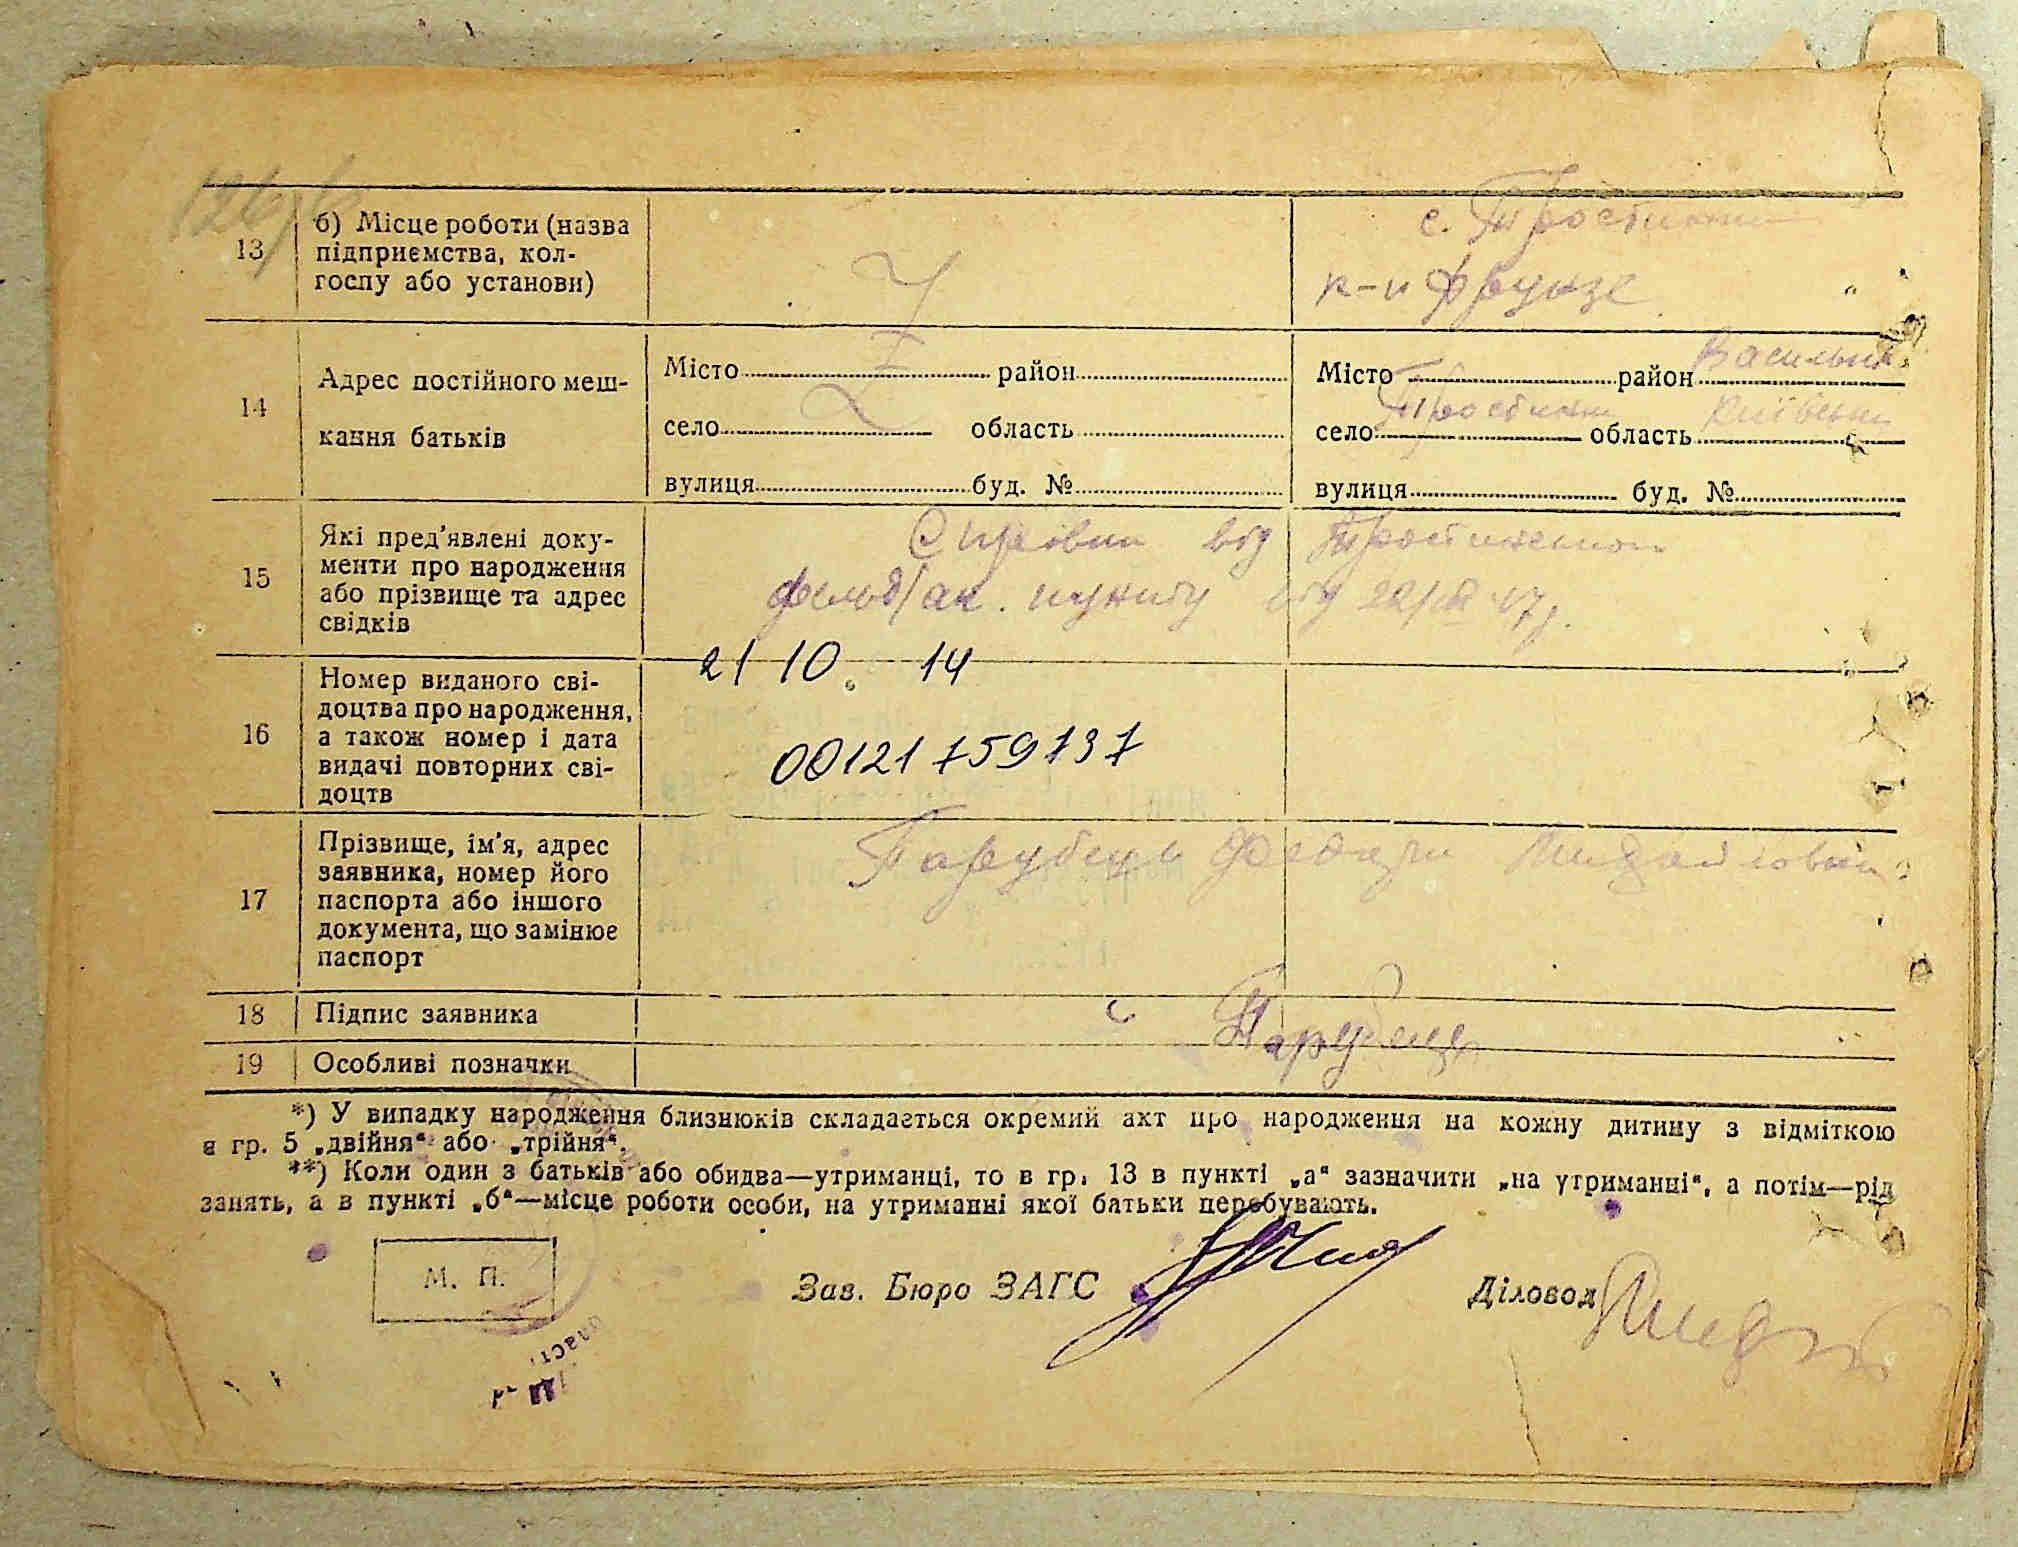 13
б) Місце роботи (назва
підприємства, кол-
госпу або установи)
Z
с. Тростинка
к-п Фрунзе
14
Адрес постійного меш-
кання батьків
Z
Місто район
село область
вулиця буд. №
Місто район Васильк.
село Тростинка область Київська
вулиця буд. №
15
Які пред'явлені доку-
менти про народження
або прізвище та адрес
свідків
Справка від Тростинского
фельд/ак. пункту від
16
Номер виданого сві-
доцтва про народження,
а також номер і дата
видачі повторних сві-
доцтв
21 10. 14
00121759737
17
Прізвище, ім'я, адрес
заявника, номер його
паспорта або іншого
документа, що замінює
паспорт
Парубець
18
Підпис заявника
Парубець
19
Особливі позначки
*) У випадку народження близнюків складається окремий акт про народження на кожну дитину з відміткою
в гр. 5 „двійня“ або „трійня“.
**) Коли один з батьків або обидва—утриманці, то в гр. 13 в пункті „а“ зазначити „на утриманні“, а потім—рід
занять, а в пункті „б“—місце роботи особи, на утриманні якої батьки перебувають.
М. П.
Зав. Бюро ЗАГС
Діловод